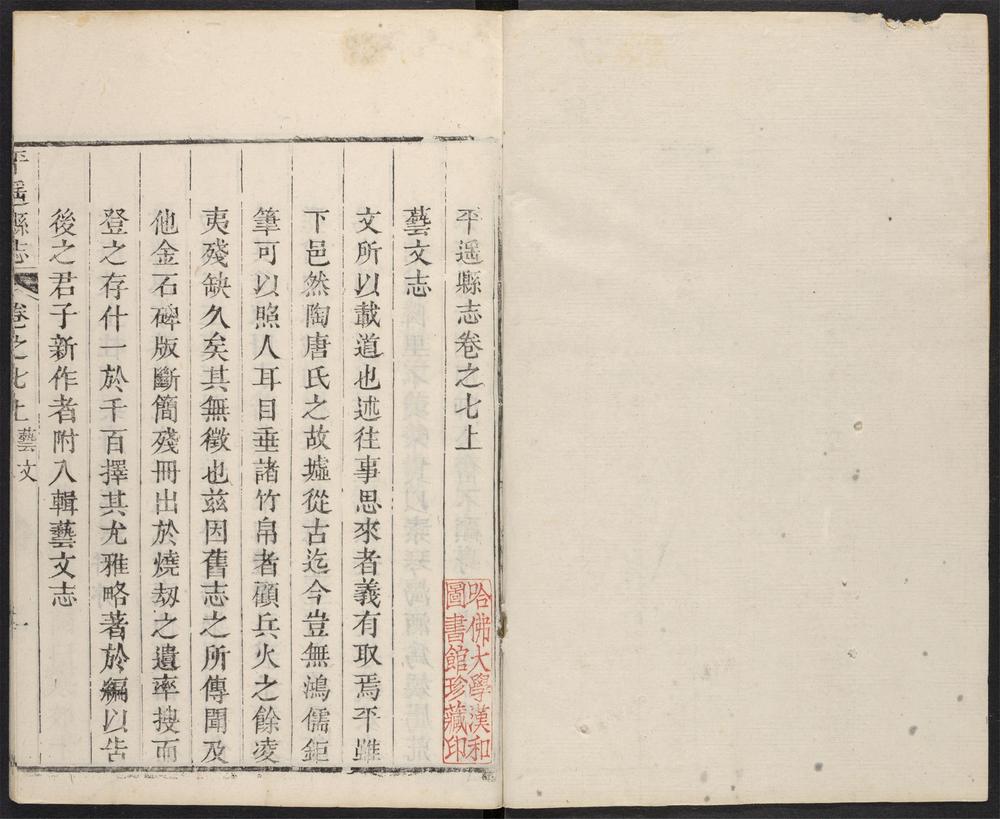 平遥縣志卷之七上
藝文志
文所以載道也述往事思來者義有取焉平雖
下邑然陶唐氏之故墟從古迄今豈無鴻儒鉅
筆可以照人耳目垂諸竹帛者顧兵火之餘凌
夷殘缺久矣其無徵也茲因舊志之所傳聞及
他金石碑版斷簡殘冊出於燒刼之遺率搜而
登之存什一於千百擇其尤雅略著於編以告
後之君子新作者附入輯藝文志
平遥縣志 卷之七上 藝文 一
哈佛大學漢和
圖書館珍藏印